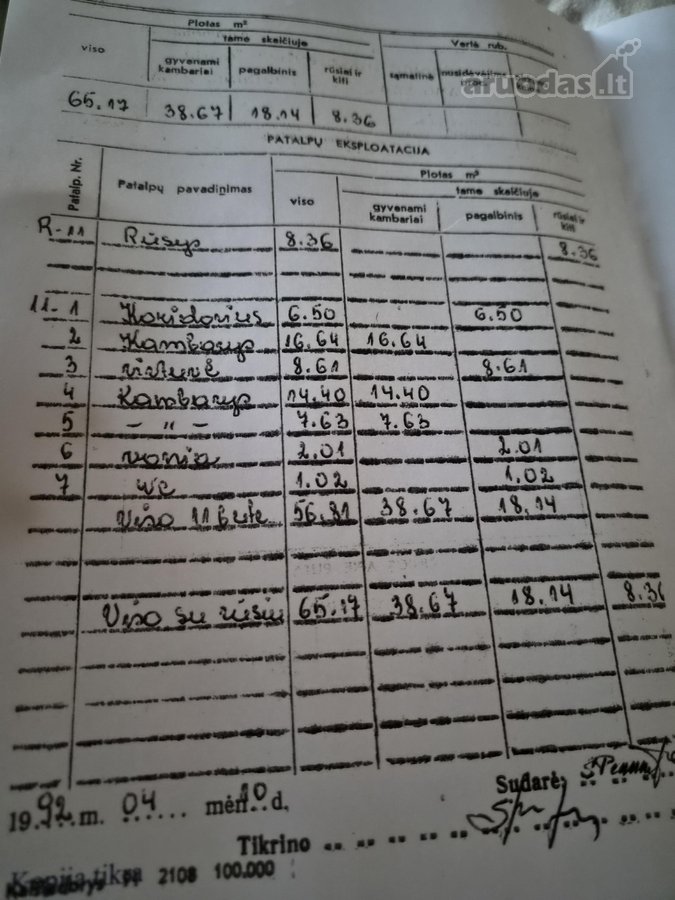 Plotas m²
viso tame skaičiuje Vertė rub.
gyvenami kambariai pagalbinis rūsiai ir kiti sąmatinė
aruodas.lt
65.17 38.67 18.14 8.36
PATALPŲ EKSPLOATACIJA
Patalp. Nr. Patalpų pavadinimas Plotas m²
viso tame skaičiuje
gyvenami kambariai pagalbinis rūsiai ir kiti
R-11 Rūsys 8.36 8.36
11-1 Koridorius 6.50 6.50
2 Kambarys 16.64 16.64
3 virtuvė 8.61 8.61
4 Kambarys 14.40 14.40
5 – " – 7.63 7.63
6 vonia 2.01 2.01
7 wc 1.02 1.02
Viso 11 bute 56.81 38.67 18.14
Viso su rūsiu 65.17 38.67 18.14 8.36
1992 m. 04 mėn. 10 d. Sudarė
Tikrino
Kopija tikra
2108 100.000